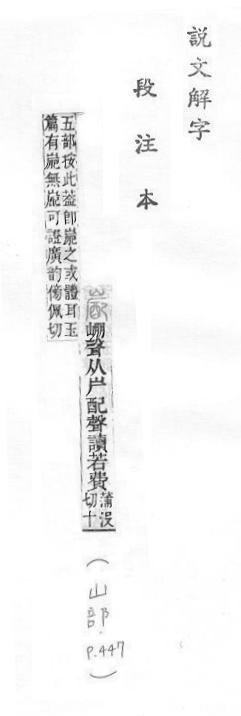 說文解字
段注本
嶏
崩聲从屵配聲讀若費
蒲沒
切十
五部按此葢卽之或體耳玉
篇有無嶏可證廣韵傍佩切
(山部.P.447)